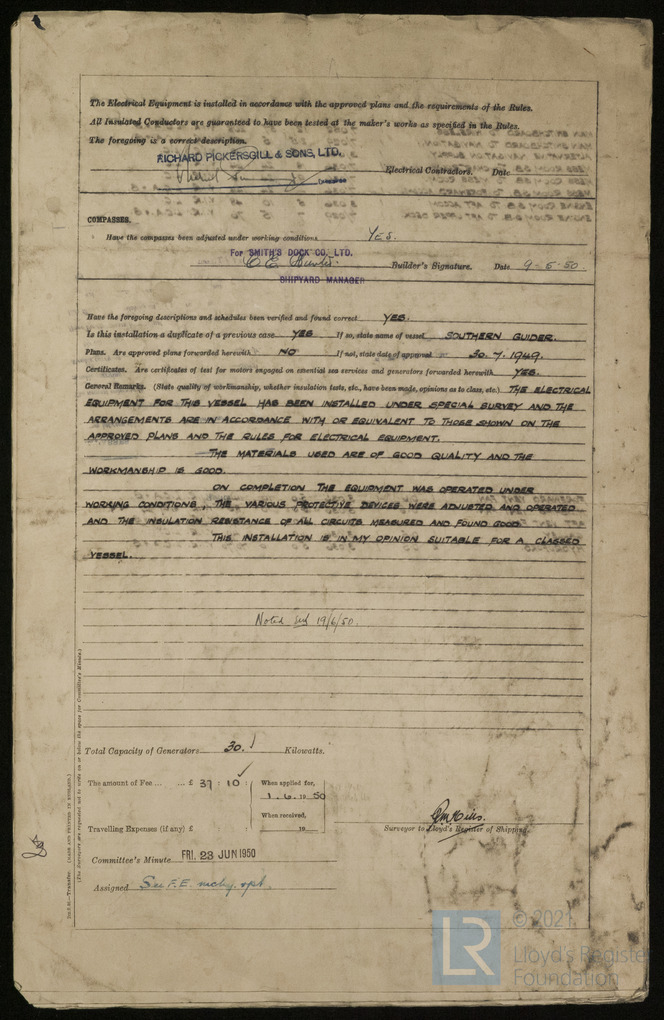 The Electrical Equipment is installed in accordance with the approved plans and the requirements of the Rules.
All Insulated Conductors are guaranteed to have been tested at the maker's works as specified in the Rules.
The foregoing is a correct description.
RICHARD PICKERSGILL & SONS, LTD.
Electrical Contractors. Date
COMPASSES.
Have the compasses been adjusted under working conditions YES.
For SMITH'S DOCK CO. LTD.
Builder's Signature. Date 9-6-50.
SHIPYARD MANAGER
Have the foregoing descriptions and schedules been verified and found correct YES.
Is this installation a duplicate of a previous case YES If so, state name of vessel SOUTHERN GUIDER.
Plans. Are approved plans forwarded herewith NO If not, state date of approval 30.7.1949.
Certificates. Are certificates of test for motors engaged on essential sea services and generators forwarded herewith YES.
General Remarks. (State quality of workmanship, whether insulation tests, etc., have been made, opinions as to class, etc.) THE ELECTRICAL
EQUIPMENT FOR THIS VESSEL HAS BEEN INSTALLED UNDER SPECIAL SURVEY AND THE
ARRANGEMENTS ARE IN ACCORDANCE WITH OR EQUIVALENT TO THOSE SHOWN ON THE
APPROVED PLANS AND THE RULES FOR ELECTRICAL EQUIPMENT.
THE MATERIALS USED ARE OF GOOD QUALITY AND THE
WORKMANSHIP IS GOOD.
ON COMPLETION THE EQUIPMENT WAS OPERATED UNDER
WORKING CONDITIONS, THE VARIOUS PROTECTIVE DEVICES WERE ADJUSTED AND OPERATED
AND THE INSULATION RESISTANCE OF ALL CIRCUITS MEASURED AND FOUND GOOD.
THIS INSTALLATION IS IN MY OPINION SUITABLE FOR A CLASSED
VESSEL.
Noted 19/6/50.
Total Capacity of Generators 30. Kilowatts.
The amount of Fee ... ... £ 37 : 10 : When applied for,
1.6.1950
When received,
Travelling Expenses (if any) £ : : 19
Surveyor to Lloyd's Register of Shipping.
Committee's Minute FRI. 23 JUN 1950
Assigned See F.E. mchy. rpt.
(The Surveyors are requested not to write on or below the space for Committee's Minute.)
(MADE AND PRINTED IN ENGLAND.)
© 2021
LR
Lloyd's Register
Foundation